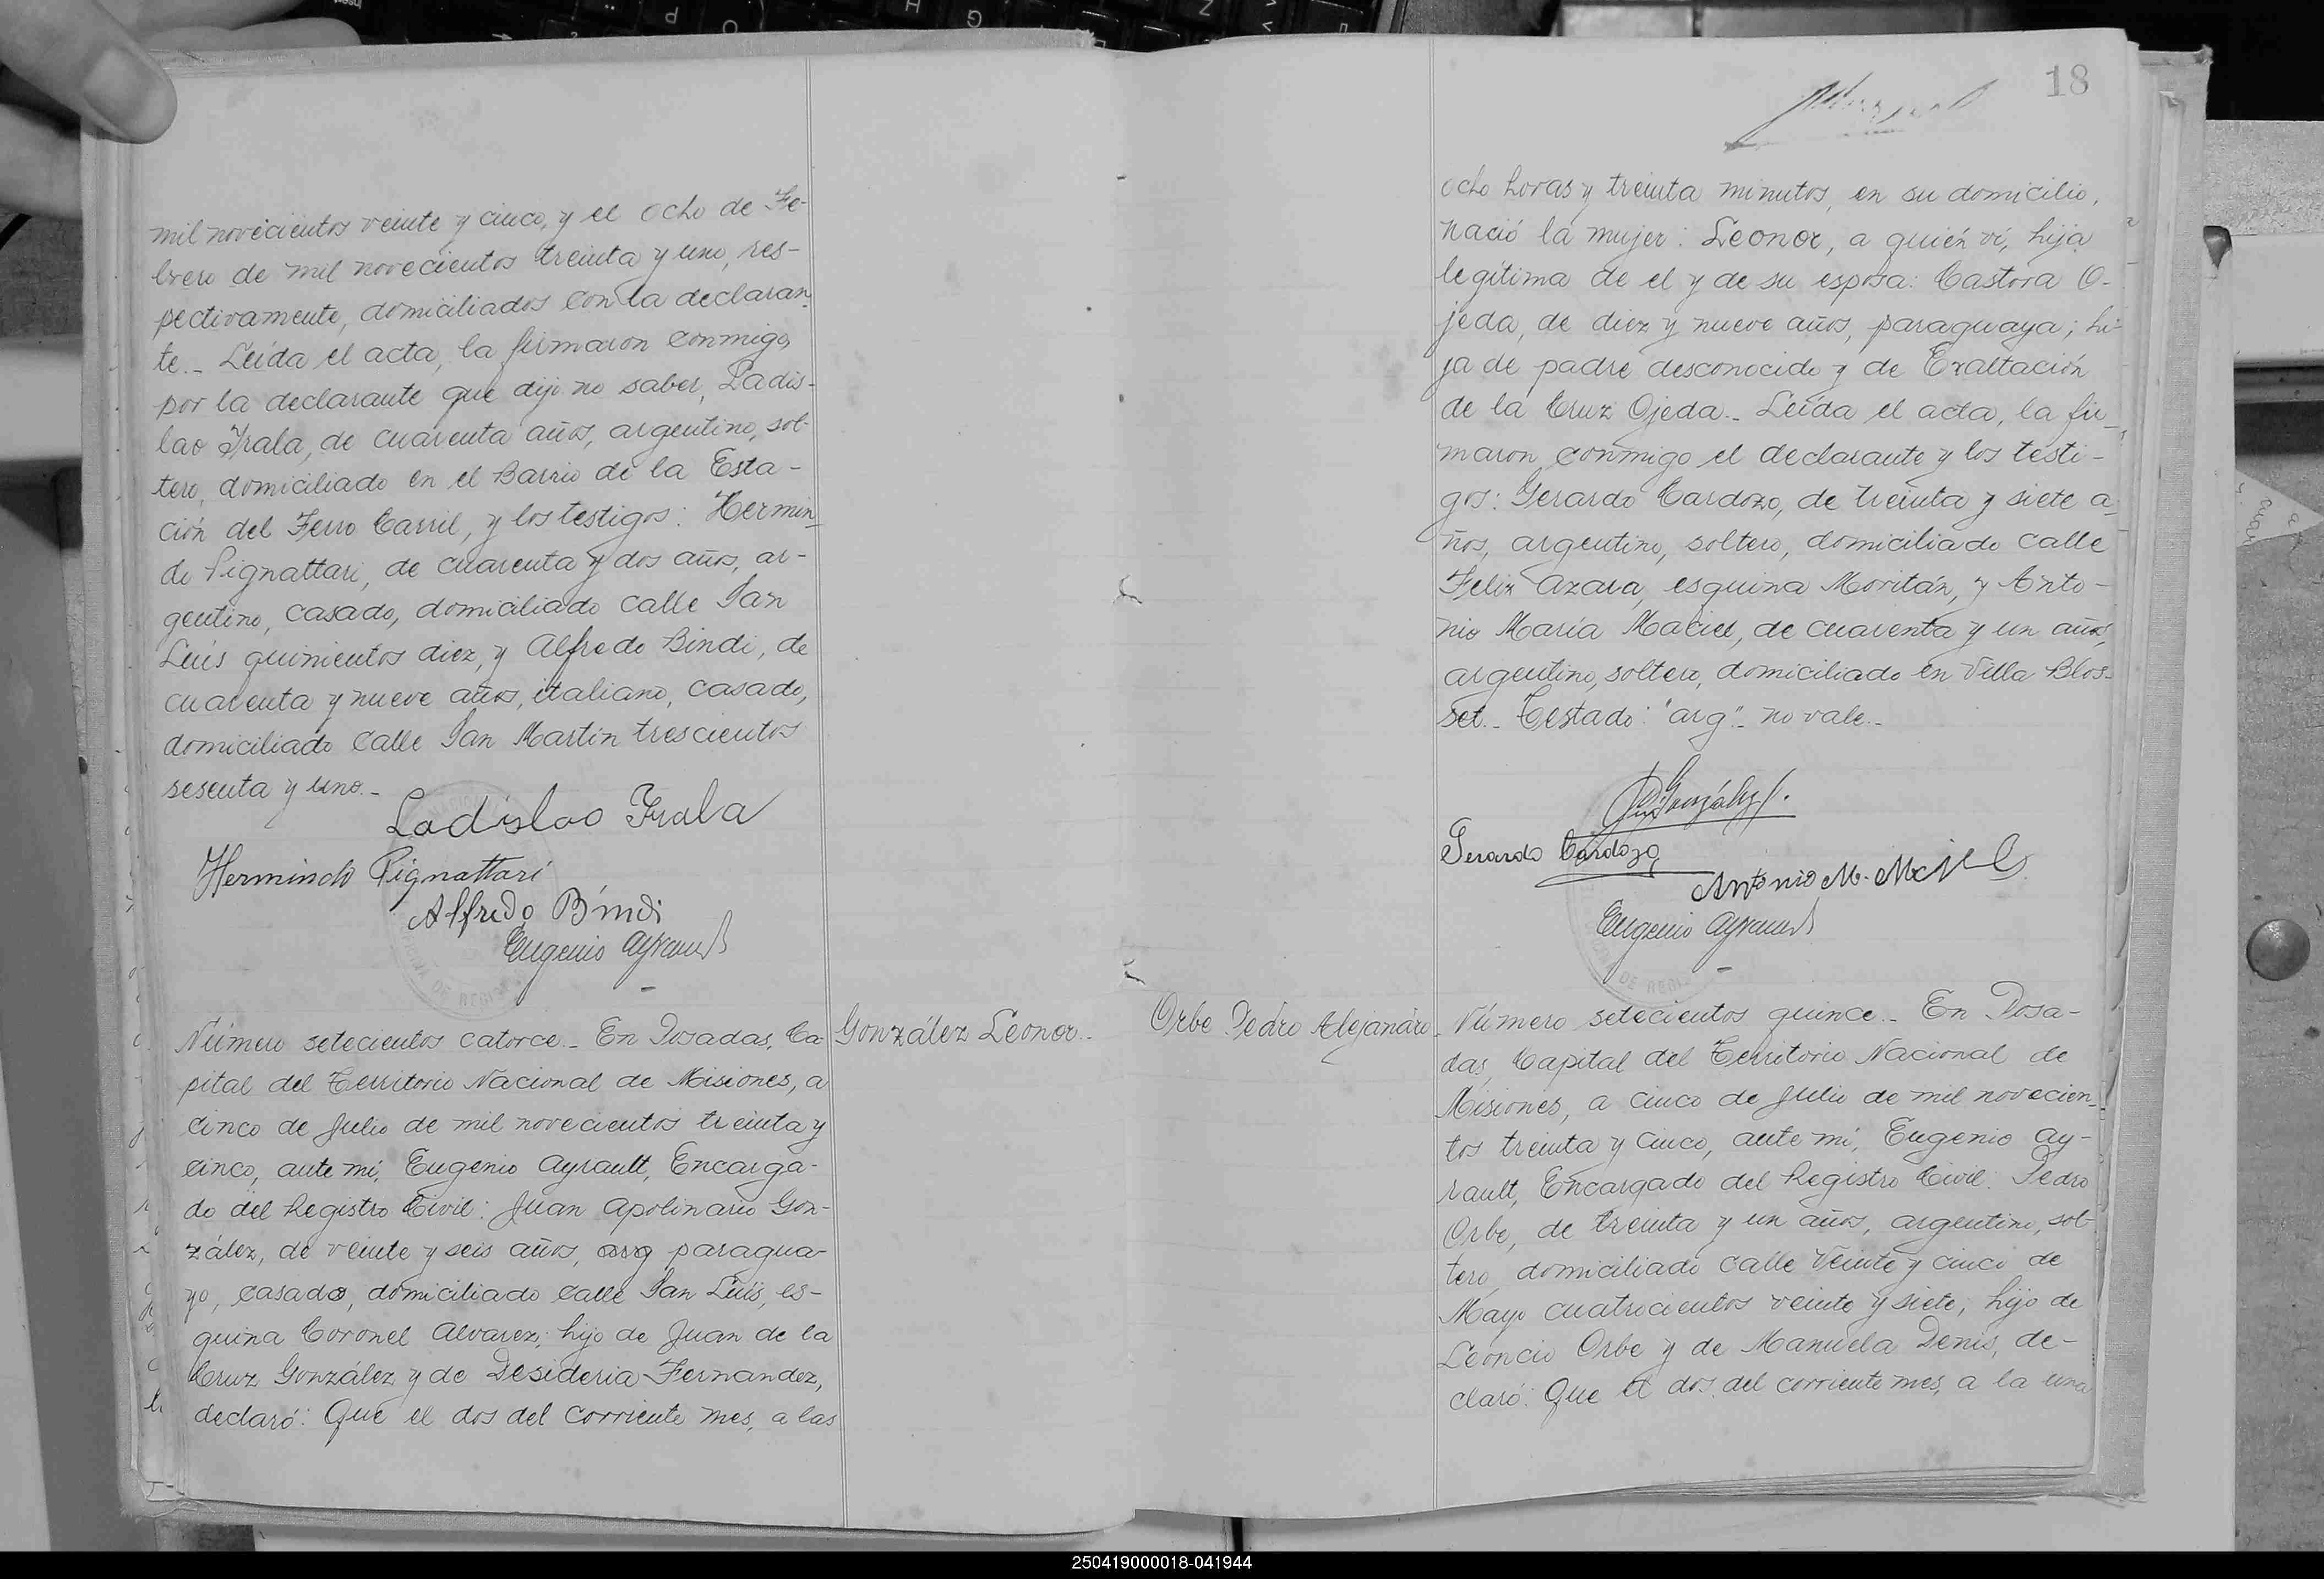 mil novecientos veinte y cinco, y el ocho de Fe-
brero de mil novecientos treinta y uno, res-
pectivamente, domiciliados con la declaran-
te.- Leída el acta, la firmaron conmigo,
por la declarante que dijo no saber, Ladis-
lao Irala, de cuarenta años, argentino, sol-
tero, domiciliado en el Barrio de la Esta-
ción del Ferro Carril, y los testigos: Hermin-
do Pignattari, de cuarenta y dos años, ar-
gentino, casado, domiciliado calle San
Luis quinientos diez, y Alfredo Bindi, de
cuarenta y nueve años, italiano, casado,
domiciliado calle San Martin trescientos
sesenta y uno.-
Ladislao Irala
Hermindo Pignattari
Alfredo Bindi
Eugenio Ayrault
González Leonor.-
Número setecientos catorce.- En Posadas, Ca-
pital del Territorio Nacional de Misiones, a
cinco de Julio de mil novecientos treinta y
cinco, ante mí, Eugenio Ayrault, Encarga-
do del Registro Civil: Juan Apolinario Gon-
zález, de veinte y seis años, arg paragua-
yo, casado, domiciliado calle San Luis, es-
quina Coronel Alvarez; hijo de Juan de la
Cruz González y de Desideria Fernandez,
declaró: Que el dos del corriente mes, a las
18
ocho horas y treinta minutos, en su domicilio,
nació la mujer: Leonor, a quién ví, hija
legítima de el y de su esposa: Castora O-
jeda, de diez y nueve años, paraguaya; hi-
ja de padre desconocido y de Exaltación
de la Cruz Ojeda.- Leída el acta, la fir-
maron conmigo el declarante y los testi-
gos: Gerardo Cardozo, de treinta y siete a-
ños, argentino, soltero, domiciliado calle
Felix Azara, esquina Moritán, y Anto-
nio María Maciel, de cuarenta y un años,
argentino, soltero, domiciliado en Villa Blos-
set.- Testado: "arg"- no vale.-
González
Gerardo Cardozo
Antonio M. Maciel
Eugenio Ayrault
Orbe Pedro Alejandro.
Número setecientos quince.- En Posa-
das, Capital del Territorio Nacional de
Misiones, a cinco de Julio de mil novecien-
tos treinta y cinco, ante mí, Eugenio Ay-
rault, Encargado del Registro Civil: Pedro
Orbe, de treinta y un años, argentino, sol-
tero, domiciliado calle Veinte y cinco de
Mayo cuatrocientos veinte y siete; hijo de
Leoncio Orbe y de Manuela Denis, de-
claró: Que el dos del corriente mes, a la una
250419000018-041944